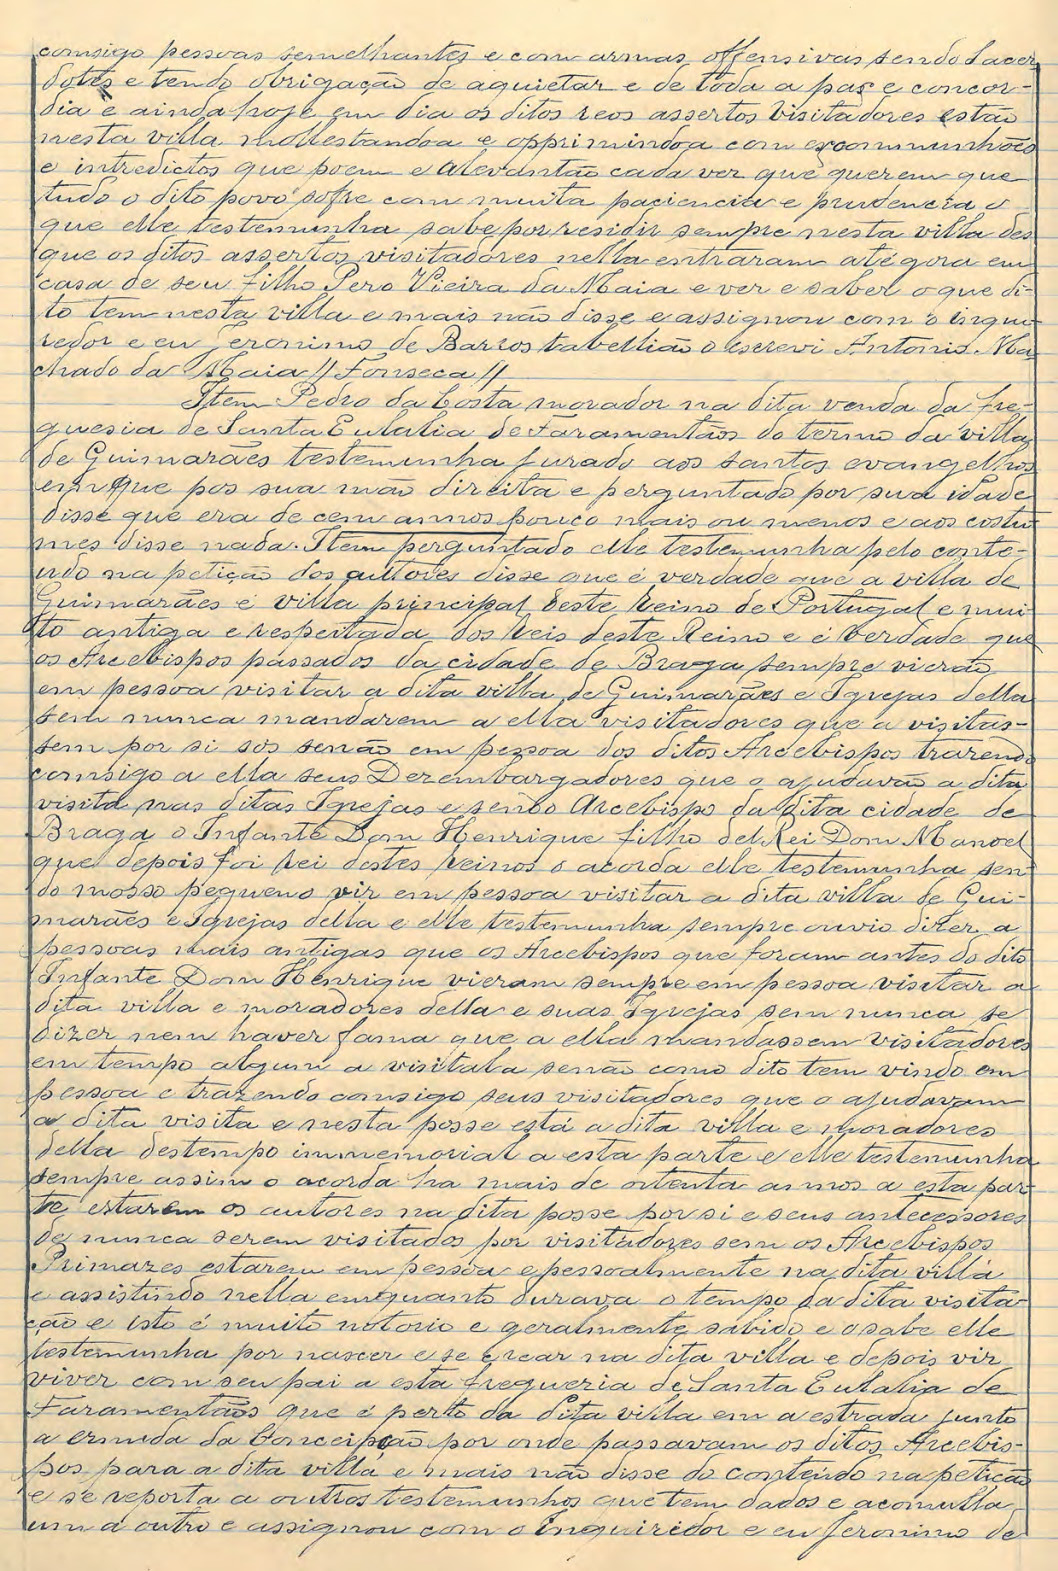 comsigo pessoas semelhantes e com armas offensivas sendo Sacer
dotes e tendo obrigação de aquietar e de toda a pas e concor-
dia e ainda hoje em dia os ditos reos assertos visitadores estão
nesta villa mollestandoa e opprimindoa com excommunhões
e intredictos que poem e alevantão cada ver que querem que
tudo o dito povo sofre com muita paciencia e prudencia o
que elle testemunha sabe por residir sempre nesta villa des
que os ditos assertos visitadores nella entraram atégora em
casa de seu filho Pero Vieira da Maia e ver e saber o que di-
to tem nesta villa e mais não disse e assignou com o inqui
redor e eu Jeronimo de Barros tabellião o escrevi Antonio Ma
chado da Maia // Fonseca //
Item Pedro da Costa morador na dita venda da fre-
guesia de Santa Eulalia de Faramontãos do termo da villa
de Guimarães testemunha jurado aos santos evangelhos
em que pos sua mão direita e perguntado por sua idade
disse que era de cem annos pouco mais ou menos e aos costu
mes disse nada. Item perguntado elle testemunha pelo conte-
udo na petição dos auttores disse que é verdade que a villa de
Guimarães é villa principal deste Reino de Portugal e mui
to antiga e respeitada dos Reis deste Reino e é verdade que
os Arcebispos passados da cidade de Braga sempre vierão
em pessoa visitar a dita villa de Guimarães e Igrejas della
sem nunca mandarem a ella visitadores que a visitas-
sem por si sós senão em pessoa dos ditos Arcebispos trazendo
comsigo a ella seus Dezembargadores que o ajudavão a dita
visita nas ditas Igrejas e sendo Arcebispo da dita cidade de
Braga o Infante Dom Henrique filho del Rei Dom Manoel
que depois foi Rei destes Reinos o acorda elle testemunha sen
do mosso pequeno vir em pessoa visitar a dita villa de Gui-
marães e Igrejas della e elle testemunha sempre ouvio dizer a
pessoas mais antigas que os Arcebispos que foram antes do dito
Infante Dom Henrique vieram sempre em pessoa visitar a
dita villa e moradores della e suas Igrejas sem nunca se
dizer nem haver fama que a ella mandassem visitadores
em tempo algum a visitala senão como dito tem vindo em
pessoa e trazendo comsigo seus visitadores que o ajudavam
a dita visita e nesta posse está a dita villa e moradores
della destempo immemorial a esta parte e elle testemunha
sempre assim o acorda ha mais de oitenta annos a esta par
te estarem os autores na dita posse por si e seus antecessores
de nunca serem visitados por visitadores sem os Arcebispos
Primazes estarem em pessoa e pessoalmente na dita villa
e assistindo nella emquanto durava o tempo da dita visita-
ção e isto é muito notorio e geralmente sabido e o sabe elle
testemunha por nascer e se crear na dita villa e depois vir
viver com seu pai a esta freguezia de Santa Eulalia de
Faramontãos que é perto da dita villa em a estrada junto
a ermida da Conceipção por onde passavam os ditos Arcebis-
pos para a dita villa e mais não disse do conteúdo na petição
e se reporta a outros testemunhos que tem dados e acomulla
um a outro e assignou com o inquiredor e eu Jeronimo de